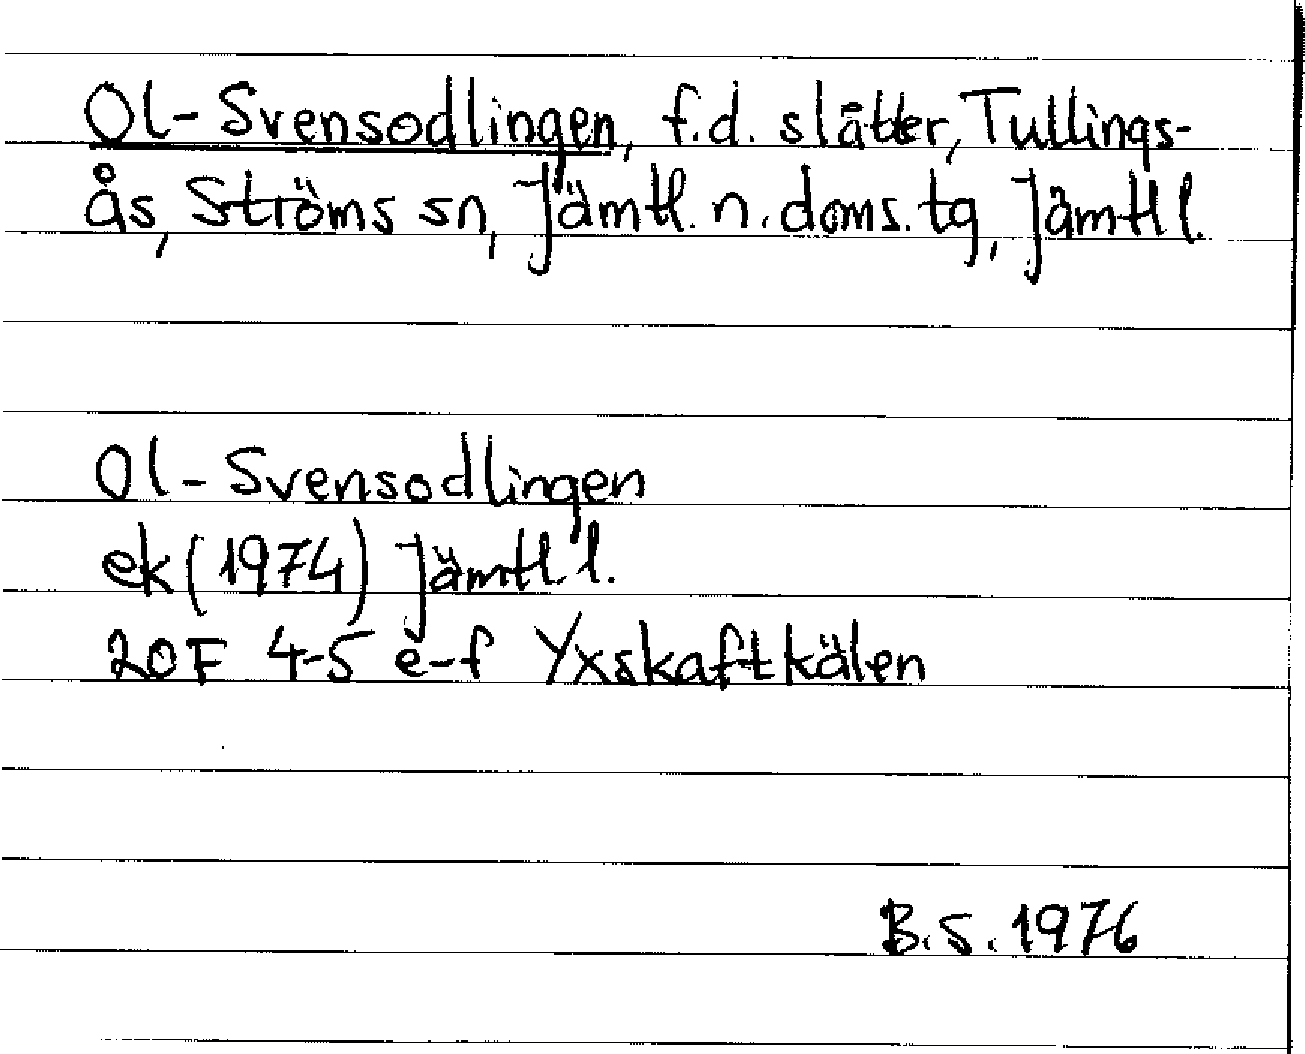 Ol-Svensodlingen, f.d. slåtter, Tullings-
ås, Ströms sn, Jämtl. n. doms. tg, Jämtl l.
Ol-Svensodlingen
ek (1974) Jämtl. l.
20F 4-5 e-f Yxskaftkälen
B.S. 1976